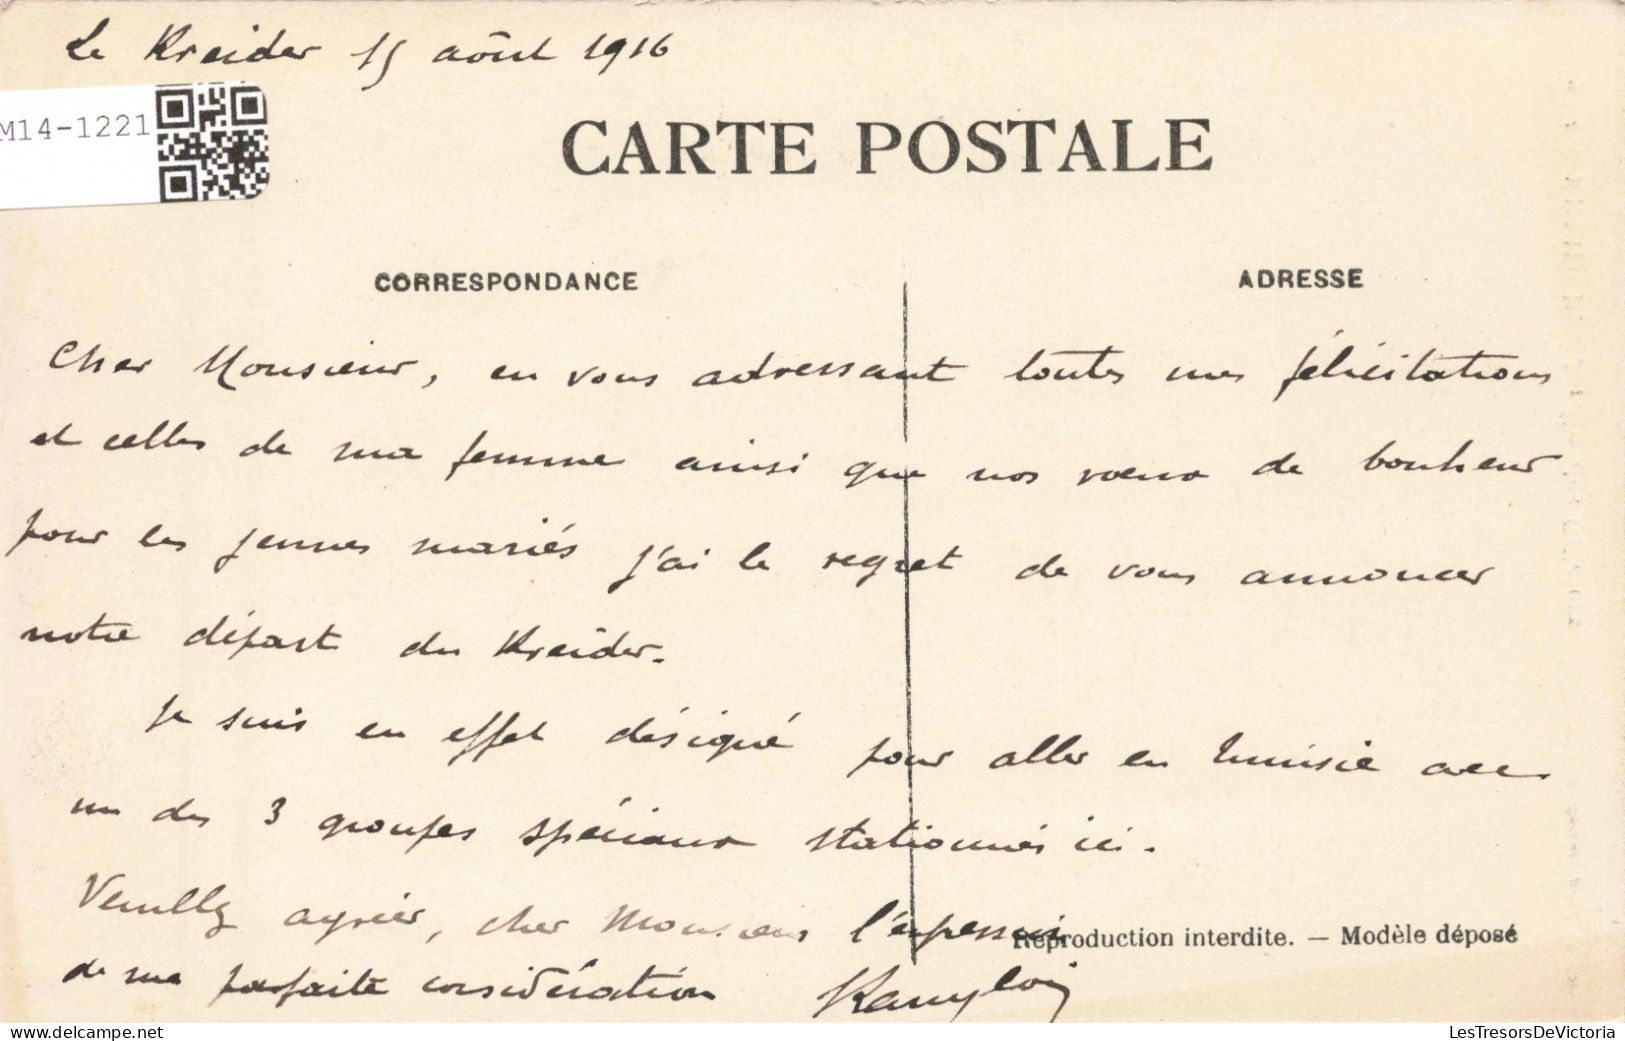 Le Kreider 15 août 1916
M14-1221
CARTE POSTALE
CORRESPONDANCE
ADRESSE
Cher Monsieur, en vous adressant toutes mes félicitations
et celles de ma femme ainsi que nos vœux de bonheur
pour les jeunes mariés j'ai le regret de vous annoncer
notre départ du Kreider.
Je suis en effet désigné pour aller en Tunisie avec
un des 3 groupes spéciaux stationnés ici.
Veuillez agréer, cher Monsieur l'expression
Reproduction interdite. — Modèle déposé
de ma parfaite considération
LesTresorsDeVictoria
www.delcampe.net